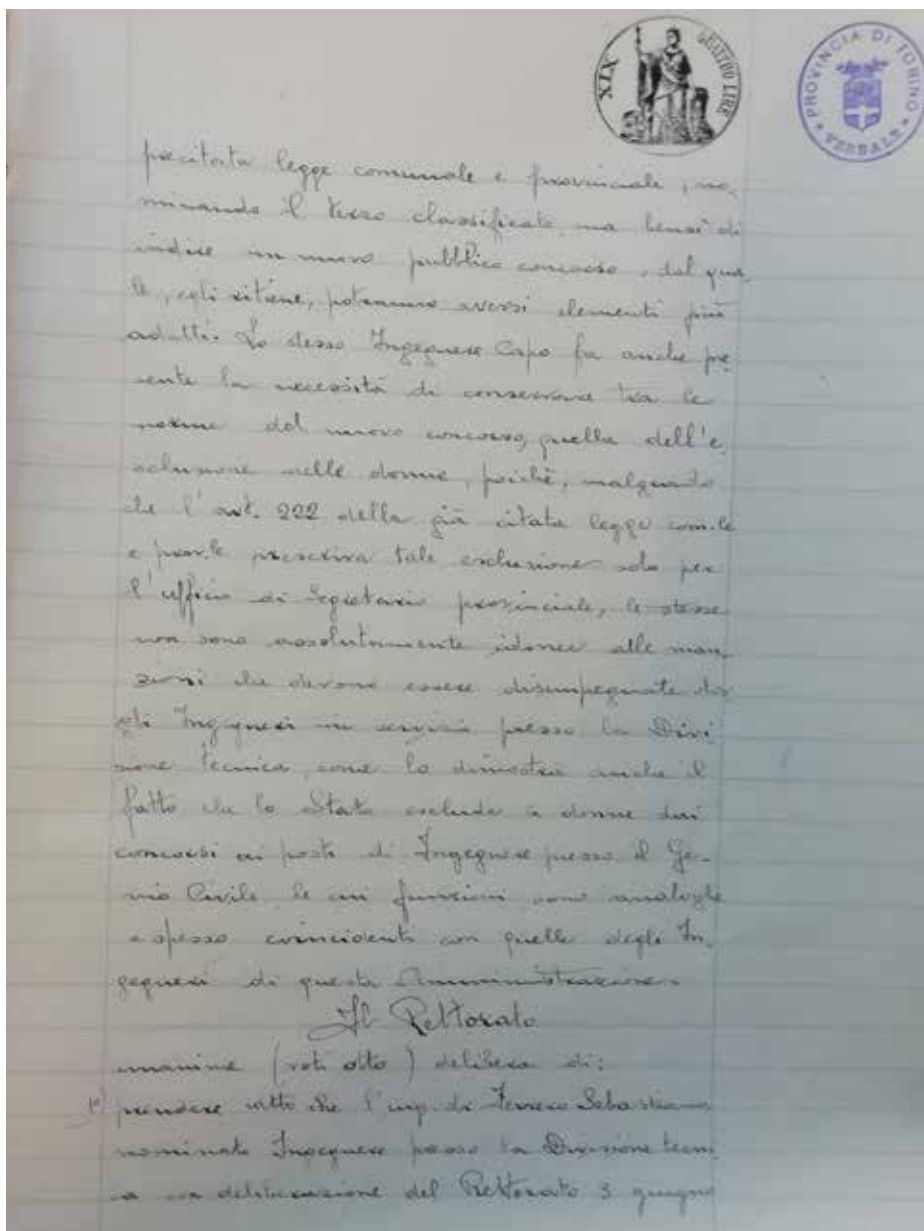 XIX QUATTRO LIRE
PROVINCIA DI TORINO
VERBALE
precitata legge comunale e provinciale, no-
minando il terzo classificato, ma bensì di
indire un nuovo pubblico concorso, dal qua-
le, egli ritiene, potranno aversi elementi più
adatti. Lo stesso Ingegnere Capo fa anche pre
sente la necessità di conservare tra le
norme del nuovo concorso, quella dell'e
sclusione nelle donne, poichè, malgrado
che l'art. 222 della già citata legge com.le
e prov.le prescriva tale esclusione solo per
l'ufficio di Segretario provinciale, le stesse
non sono assolutamente idonee alle man-
zioni che devono essere disimpegnate da
gli Ingegneri in servizio presso la Divi
sione tecnica, come lo dimostra anche il
fatto che lo Stato esclude le donne dai
concorsi ai posti di Ingegnere presso il Ge-
nio Civile, le cui funzioni sono analoghe
e spesso coincidenti con quelle degli In-
gegneri di questa Amministrazione.
Il Rettorato
unanime (voti otto) delibera di:
1°) prendere atto che l'ing. di Ferrero Sebastiano
nominato Ingegnere presso la Divisione tecni
ca con deliberazione del Rettorato 3 giugno